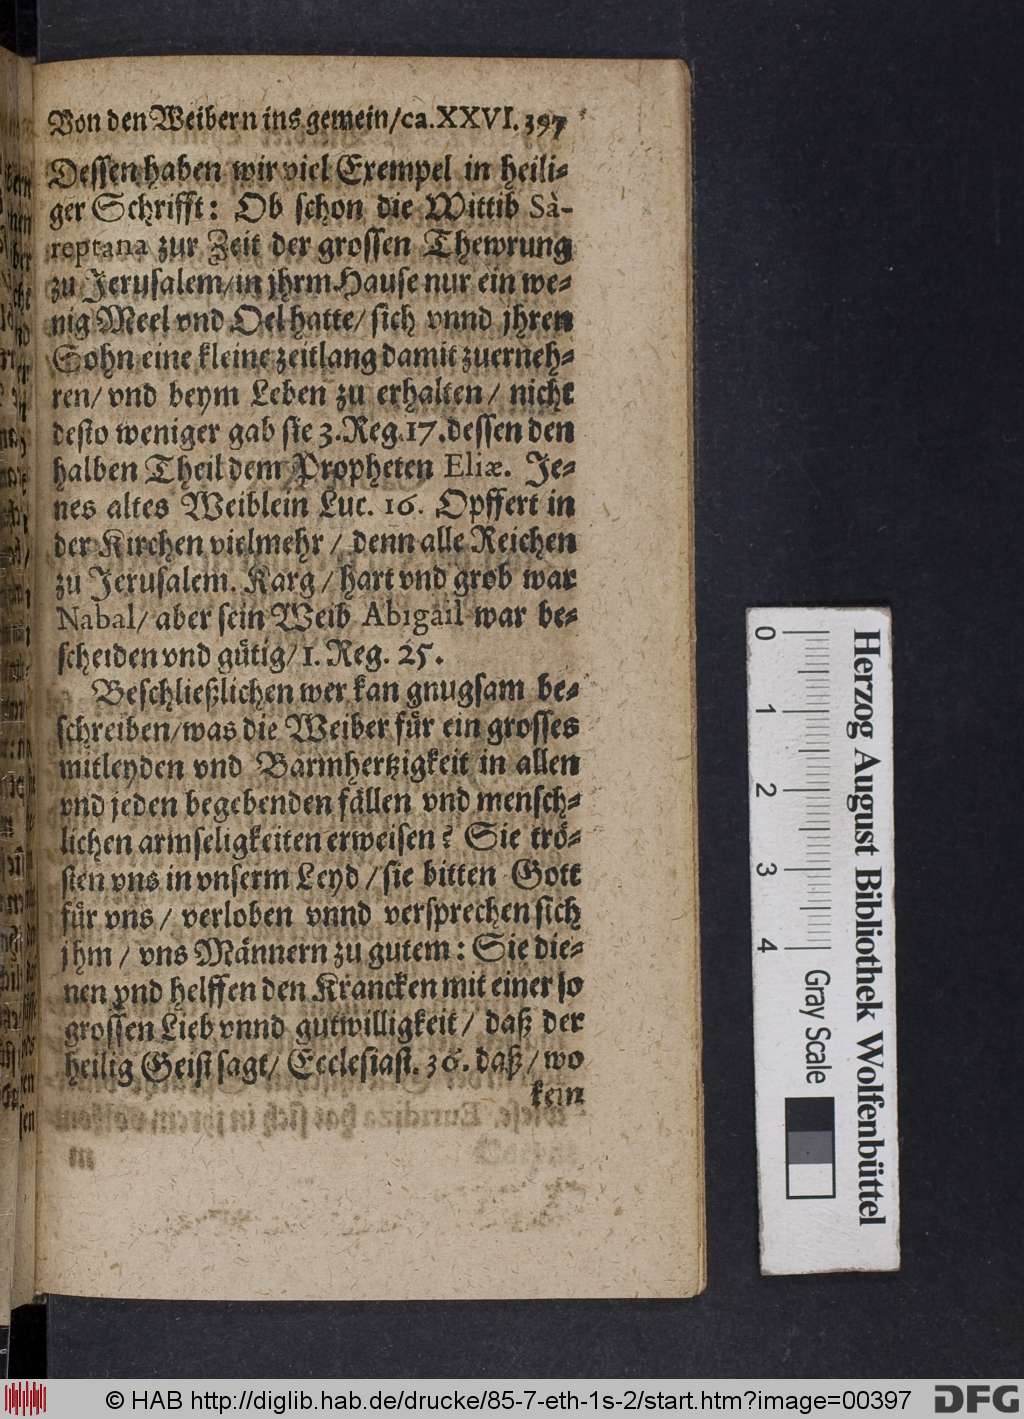 Von den Weibern ins gemein/ca.XXVI. 397
Dessen haben wir viel Exempel in heili-
ger Schrifft: Ob schon die Wittib Sà-
reptana zur Zeit der grossen Thewrung
zu Jerusalem/in jhrm Hause nur ein we-
nig Meel vnd Oel hatte/ sich vnnd jhren
Sohn eine kleine zeitlang damit zuerneh-
ren/ vnd beym Leben zu erhalten/ nicht
desto weniger gab sie 3.Reg.17.dessen den
halben Theil dem Propheten Eliæ. Je-
nes altes Weiblein Luc. 16. Opffert in
der Kirchen vielmehr / denn alle Reichen
zu Jerusalem. Karg / hart vnd grob war
Nabal/ aber sein Weib Abigail war be-
scheiden vnd gütig/ 1. Reg. 25.
Beschließlichen wer kan gnugsam be-
schreiben/was die Weiber für ein grosses
mitleyden vnd Barmhertzigkeit in allen
vnd jeden begebenden fällen vnd mensch-
lichen armseligkeiten erweisen? Sie trö-
sten vns in vnserm Leyd / sie bitten Gott
für vns / verloben vnnd versprechen sich
jhm / vns Männern zu gutem: Sie die-
nen vnd helffen den Krancken mit einer so
grossen Lieb vnnd gutwilligkeit / daß der
heilig Geist sagt/ Ecclesiast. 36. daß / wo
kein
0 1 2 3 4
Gray Scale
Herzog August Bibliothek Wolfenbüttel
© HAB http://diglib.hab.de/drucke/85-7-eth-1s-2/start.htm?image=00397
DFG